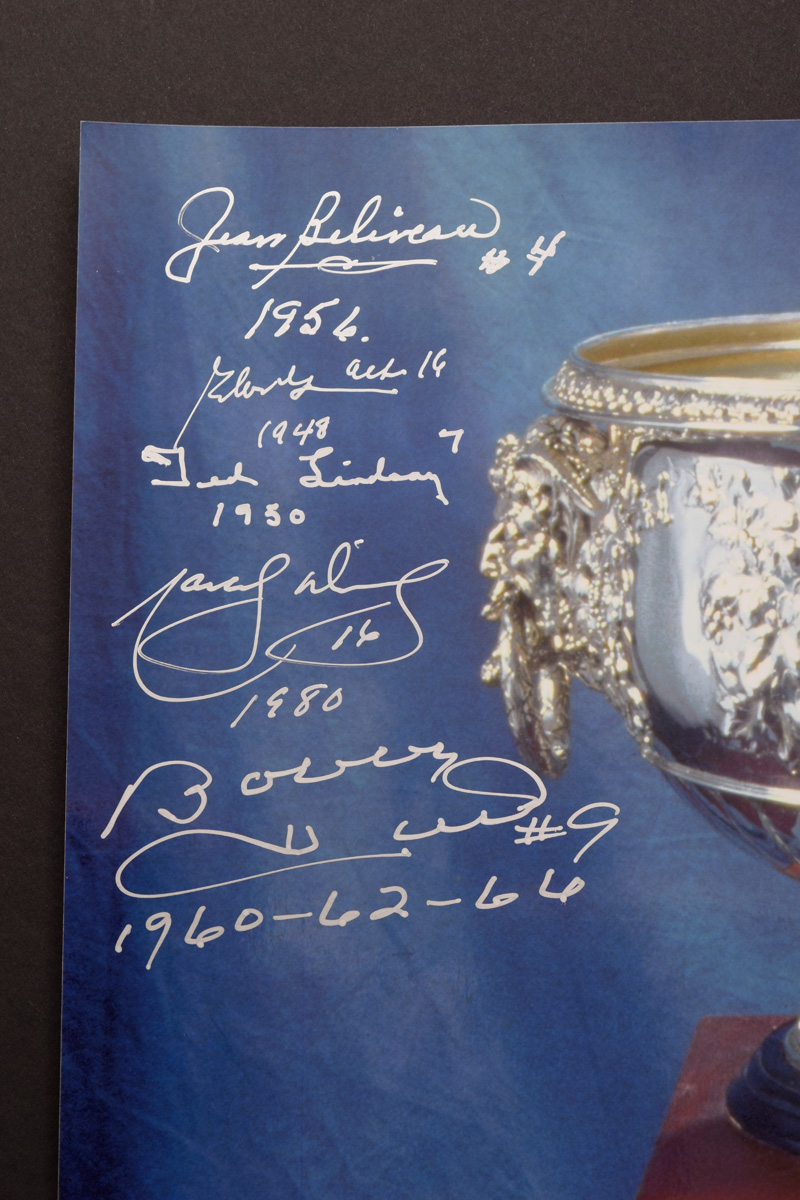 Jean Beliveau #4
1956.
Elach 16
1948
Ted Lindsay 7
1950
Marcel Dionne
16
1980
Bobby
Hull #9
1960-62-66